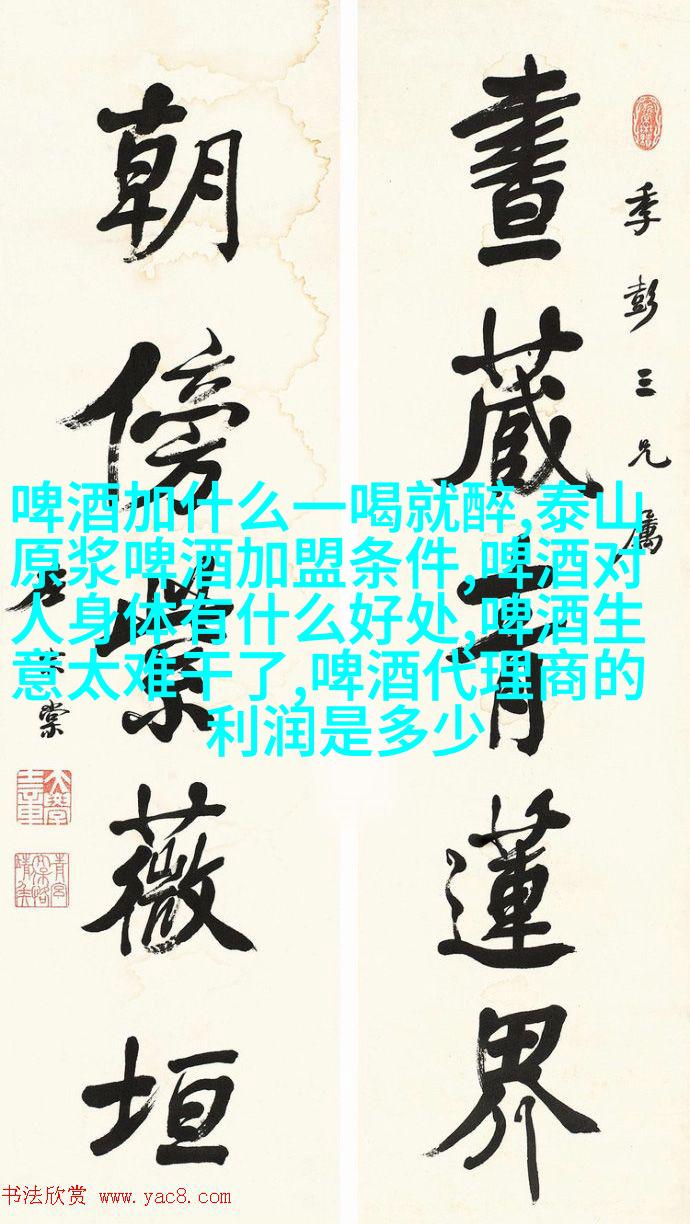 季彭三兄属
書蔵青蓮界
朝傍紫薇垣
啤酒加什么一喝就醉,泰山
原浆啤酒加盟条件,啤酒对
人身体有什么好处,啤酒生
意太难干了,啤酒代理商的
利润是多少
书法欣赏 www.yac8.com